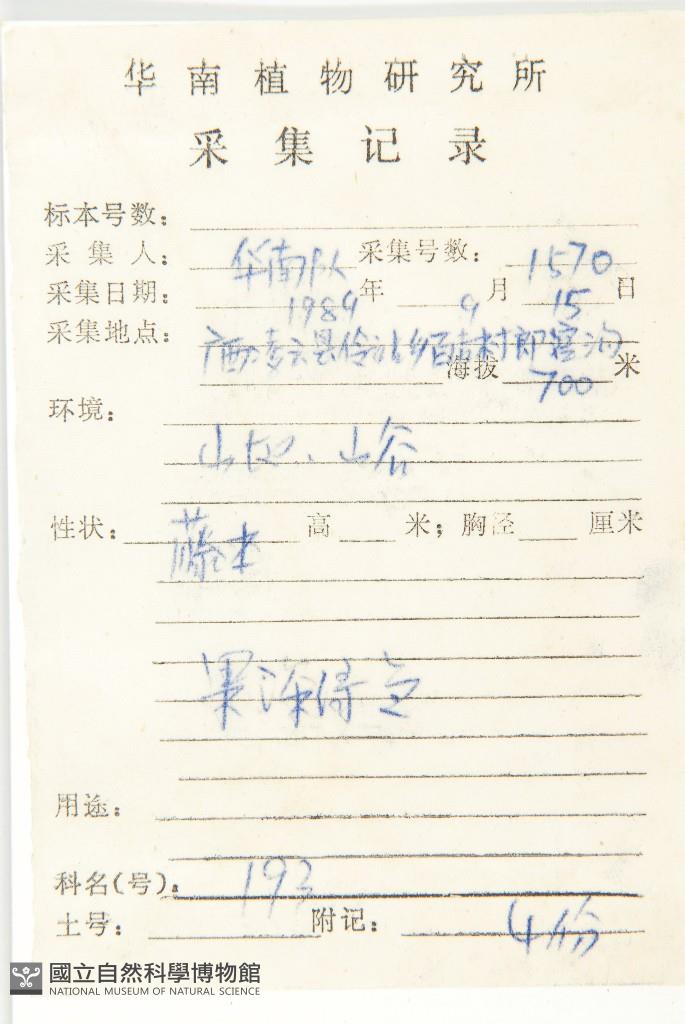 华南植物研究所
采集记录
标本号数：
采集人： 华南队 采集号数： 1570
采集日期： 1989 年 9 月 15 日
采集地点： 广西凌云县伶站乡百吉村
海拔 700 米
环境：
山地、山谷
性状： 藤本 高 米；胸径 厘米
果深绿色
用途：
科名(号)： 193
土号： 附记： 4份
國立自然科學博物館
NATIONAL MUSEUM OF NATURAL SCIENCE